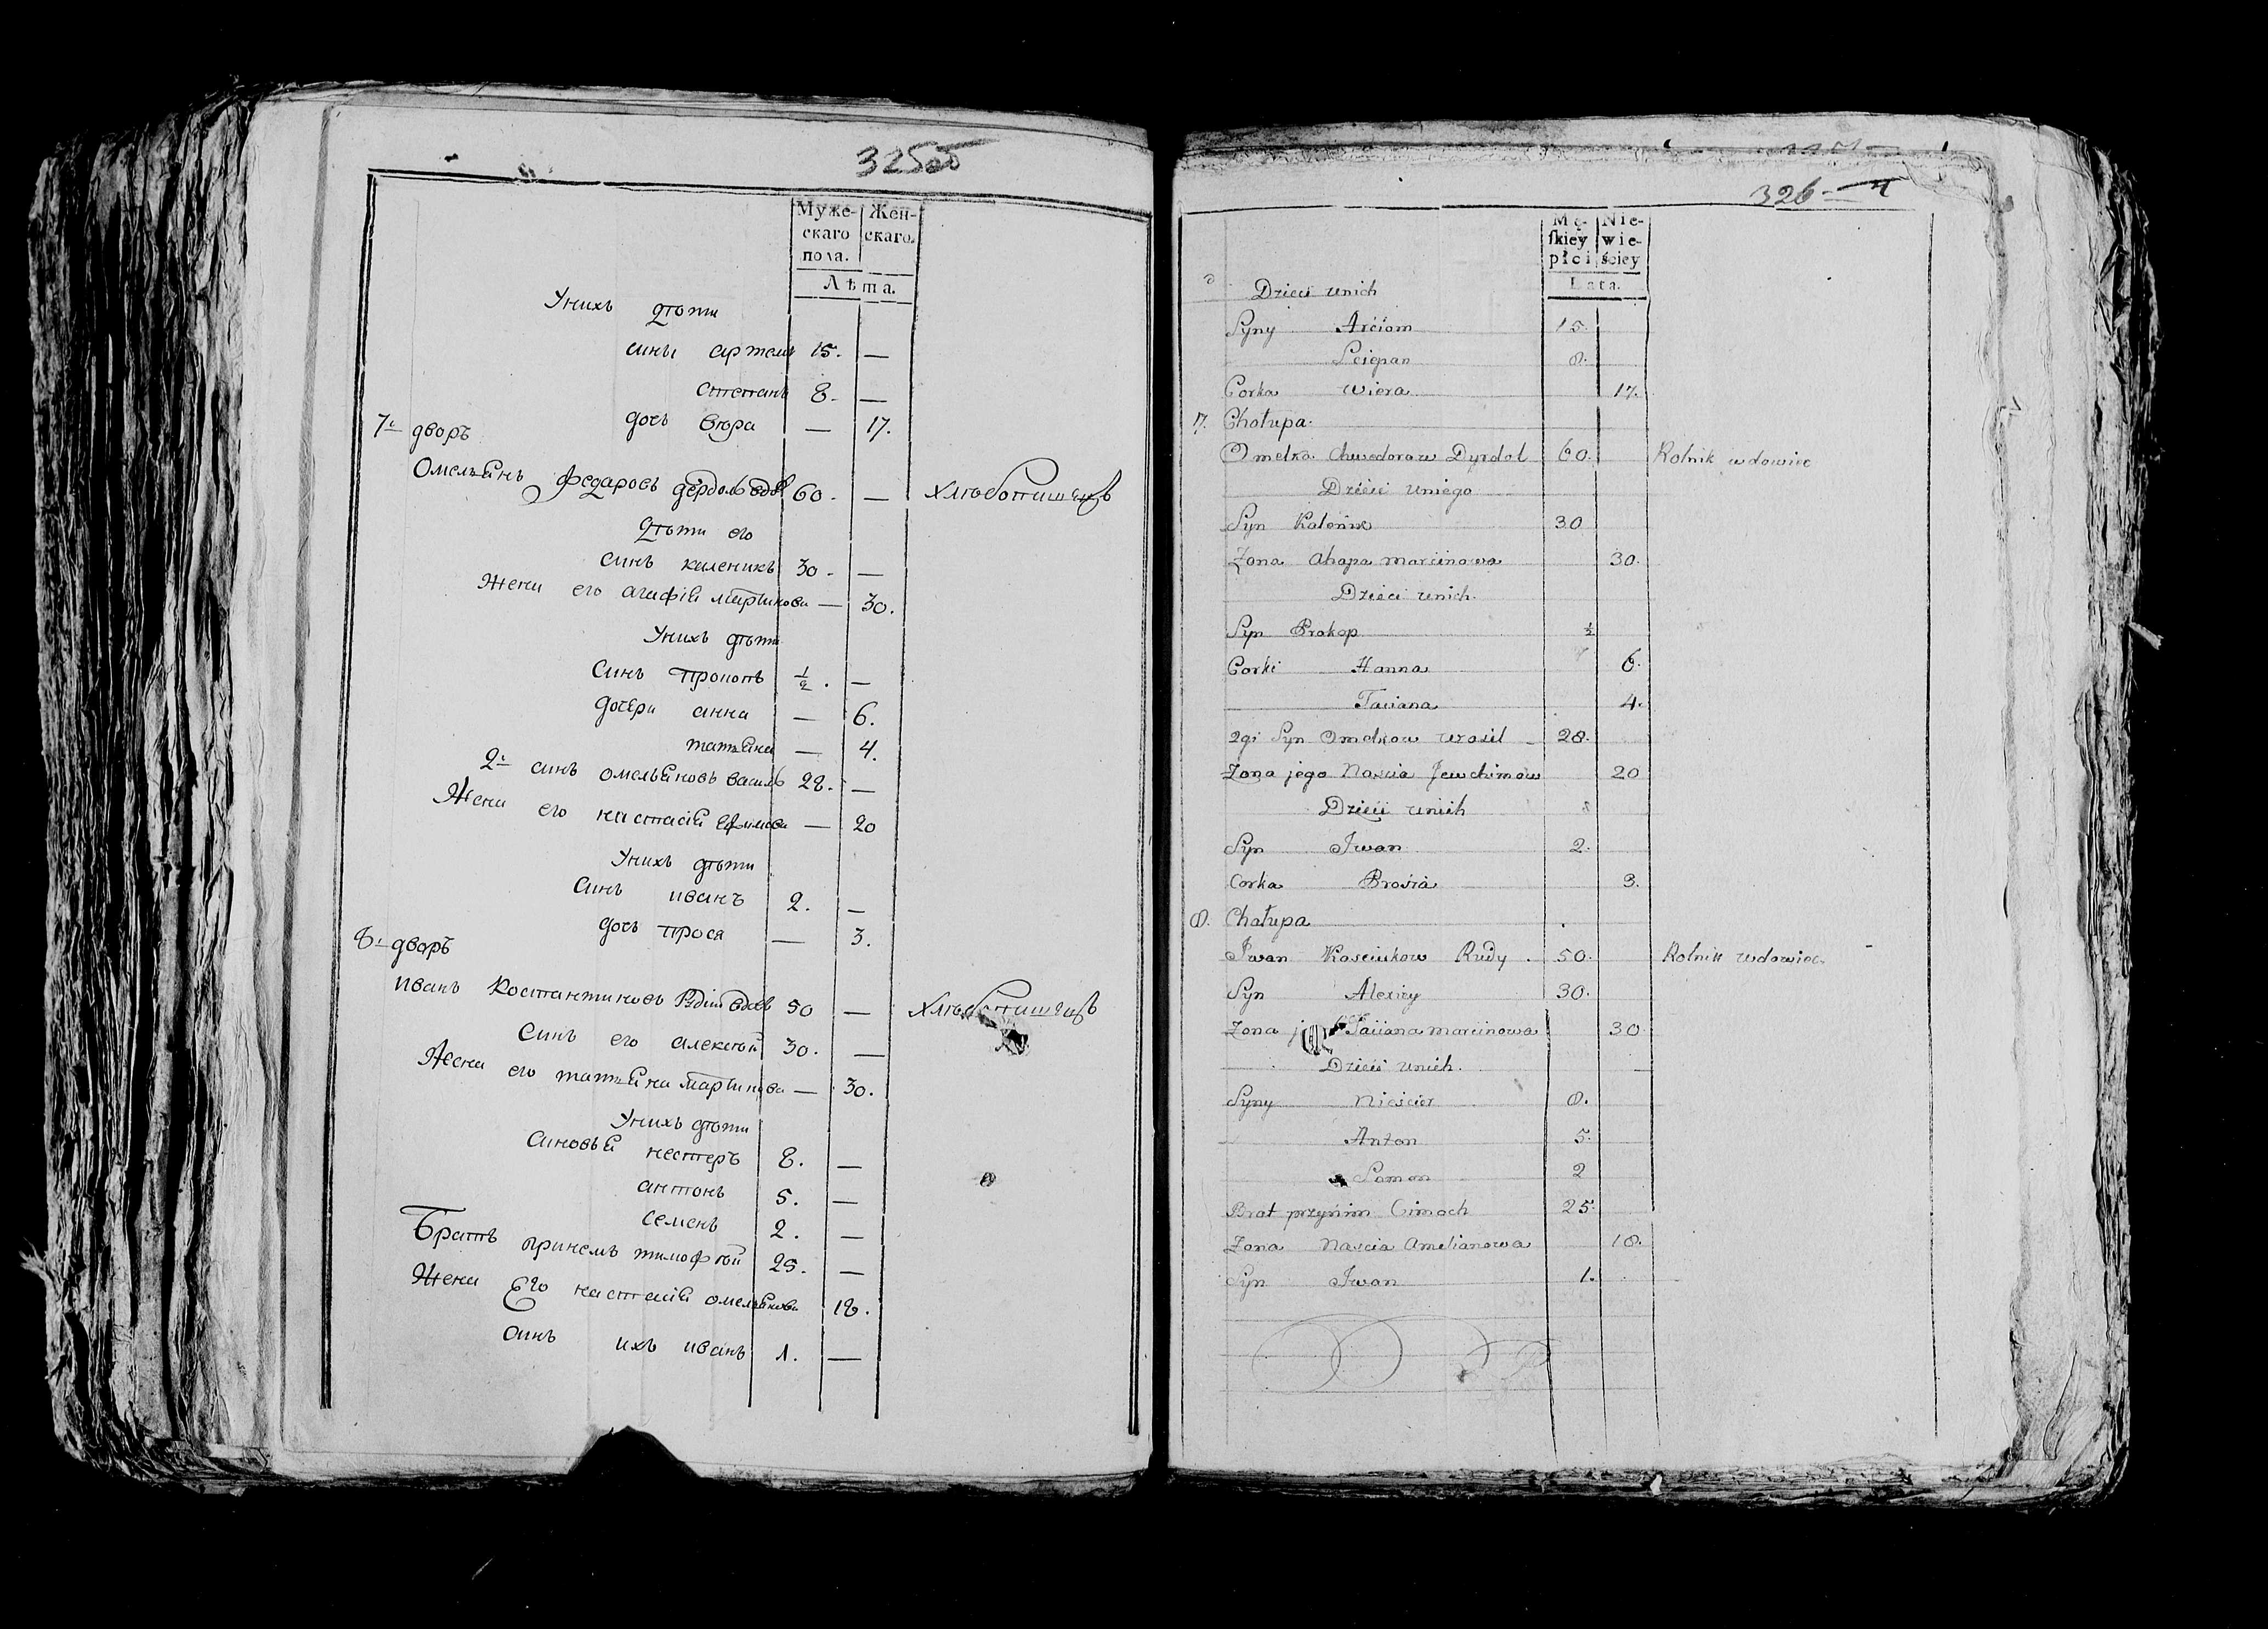 325об
Муже- Жен-
скаго скаго.
пола.
Лѣта.
Унихъ дѣти
сины артемъ 15. —
степанъ 8. —
дочь вѣра — 17.
7й дворъ
Омельянъ федаровъ дердоль вдов 60. — хлѣбопашецъ
дѣти его
синъ каленикъ 30. —
Жена его агафія мартинова — 30.
Унихъ дѣти
Синъ прокопъ ½. —
дочери анна — 6.
татьяна — 4.
2й синъ омельяновъ василь 28. —
Жена его настасія ефимова — 20
Унихъ дѣти
Синъ иванъ 2. —
дочь прося — 3.
8й дворъ
иванъ костантиновъ вдов 50 — хлѣбопашецъ
Синъ его алексѣй 30. —
Жена его татьяна мартинова — 30.
Унихъ дѣти
Синовья нестеръ 8. —
антонъ 5. —
семенъ 2. —
Братъ принемъ тимофѣй 25. —
Жена Его настасія омельянова 18.
Синъ ихъ иванъ 1. —
326
Mę- Nie-
ſkiéy wie-
płci ściey
Lata.
Dzieci unich
Syny Arciom 15.
Sciepan 8.
Corka Wiera 17.
7. Chałupa.
Omelka Chwedorow Dyrdol 60. Rolnik wdowiec
Dzieci uniego
Syn Kalenik 30
Zona Ahapa marcinowa 30.
Dzieci unich.
Syn Prokop ½
Corki Hanna 6.
Taciana 4.
2gi Syn Omelkow wasil 28.
Zona jego Nascia Jewchimow 20
Dzieci unich
Syn Jwan 2.
Corka Prosia 3.
8. Chałupa
Jwan Kasciukow Rudy. 50. Rolnik wdowiec.
Syn Alexiey 30.
Zona Taciana marcinowa 30
Dzieci unich.
Syny Niescier 8.
Anton 5.
Samon 2
Brat przynim Cimoch 25.
Zona Nascia Amelianowa 18.
Syn Jwan 1.